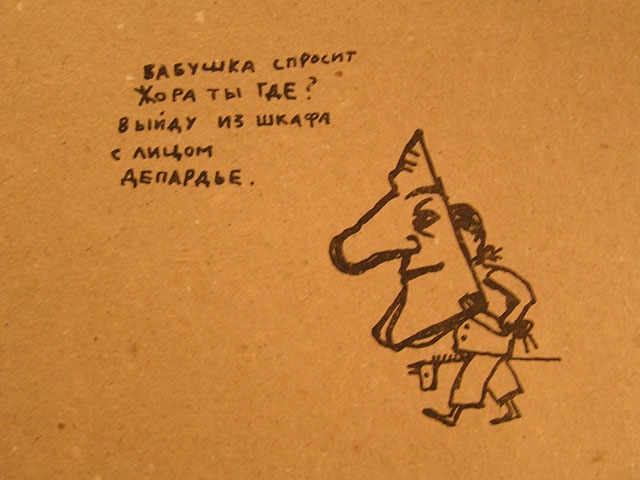 БАБУШКА СПРОСИТ
ЖОРА ТЫ ГДЕ?
ВЫЙДУ ИЗ ШКАФА
С ЛИЦОМ
ДЕПАРДЬЕ.